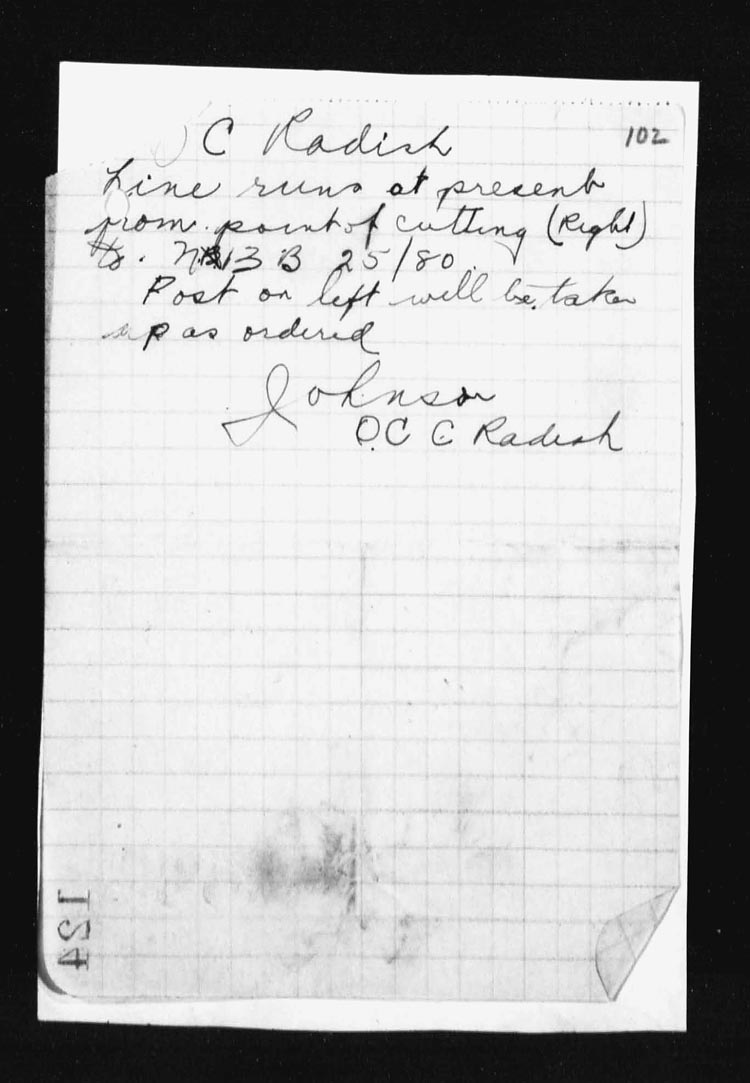 C Radish
102
Line runs at present
from point of cutting (Right)
to. 13 B 25/80
Post on left will be taken
up as ordered
Johnson
O.C C Radish
124